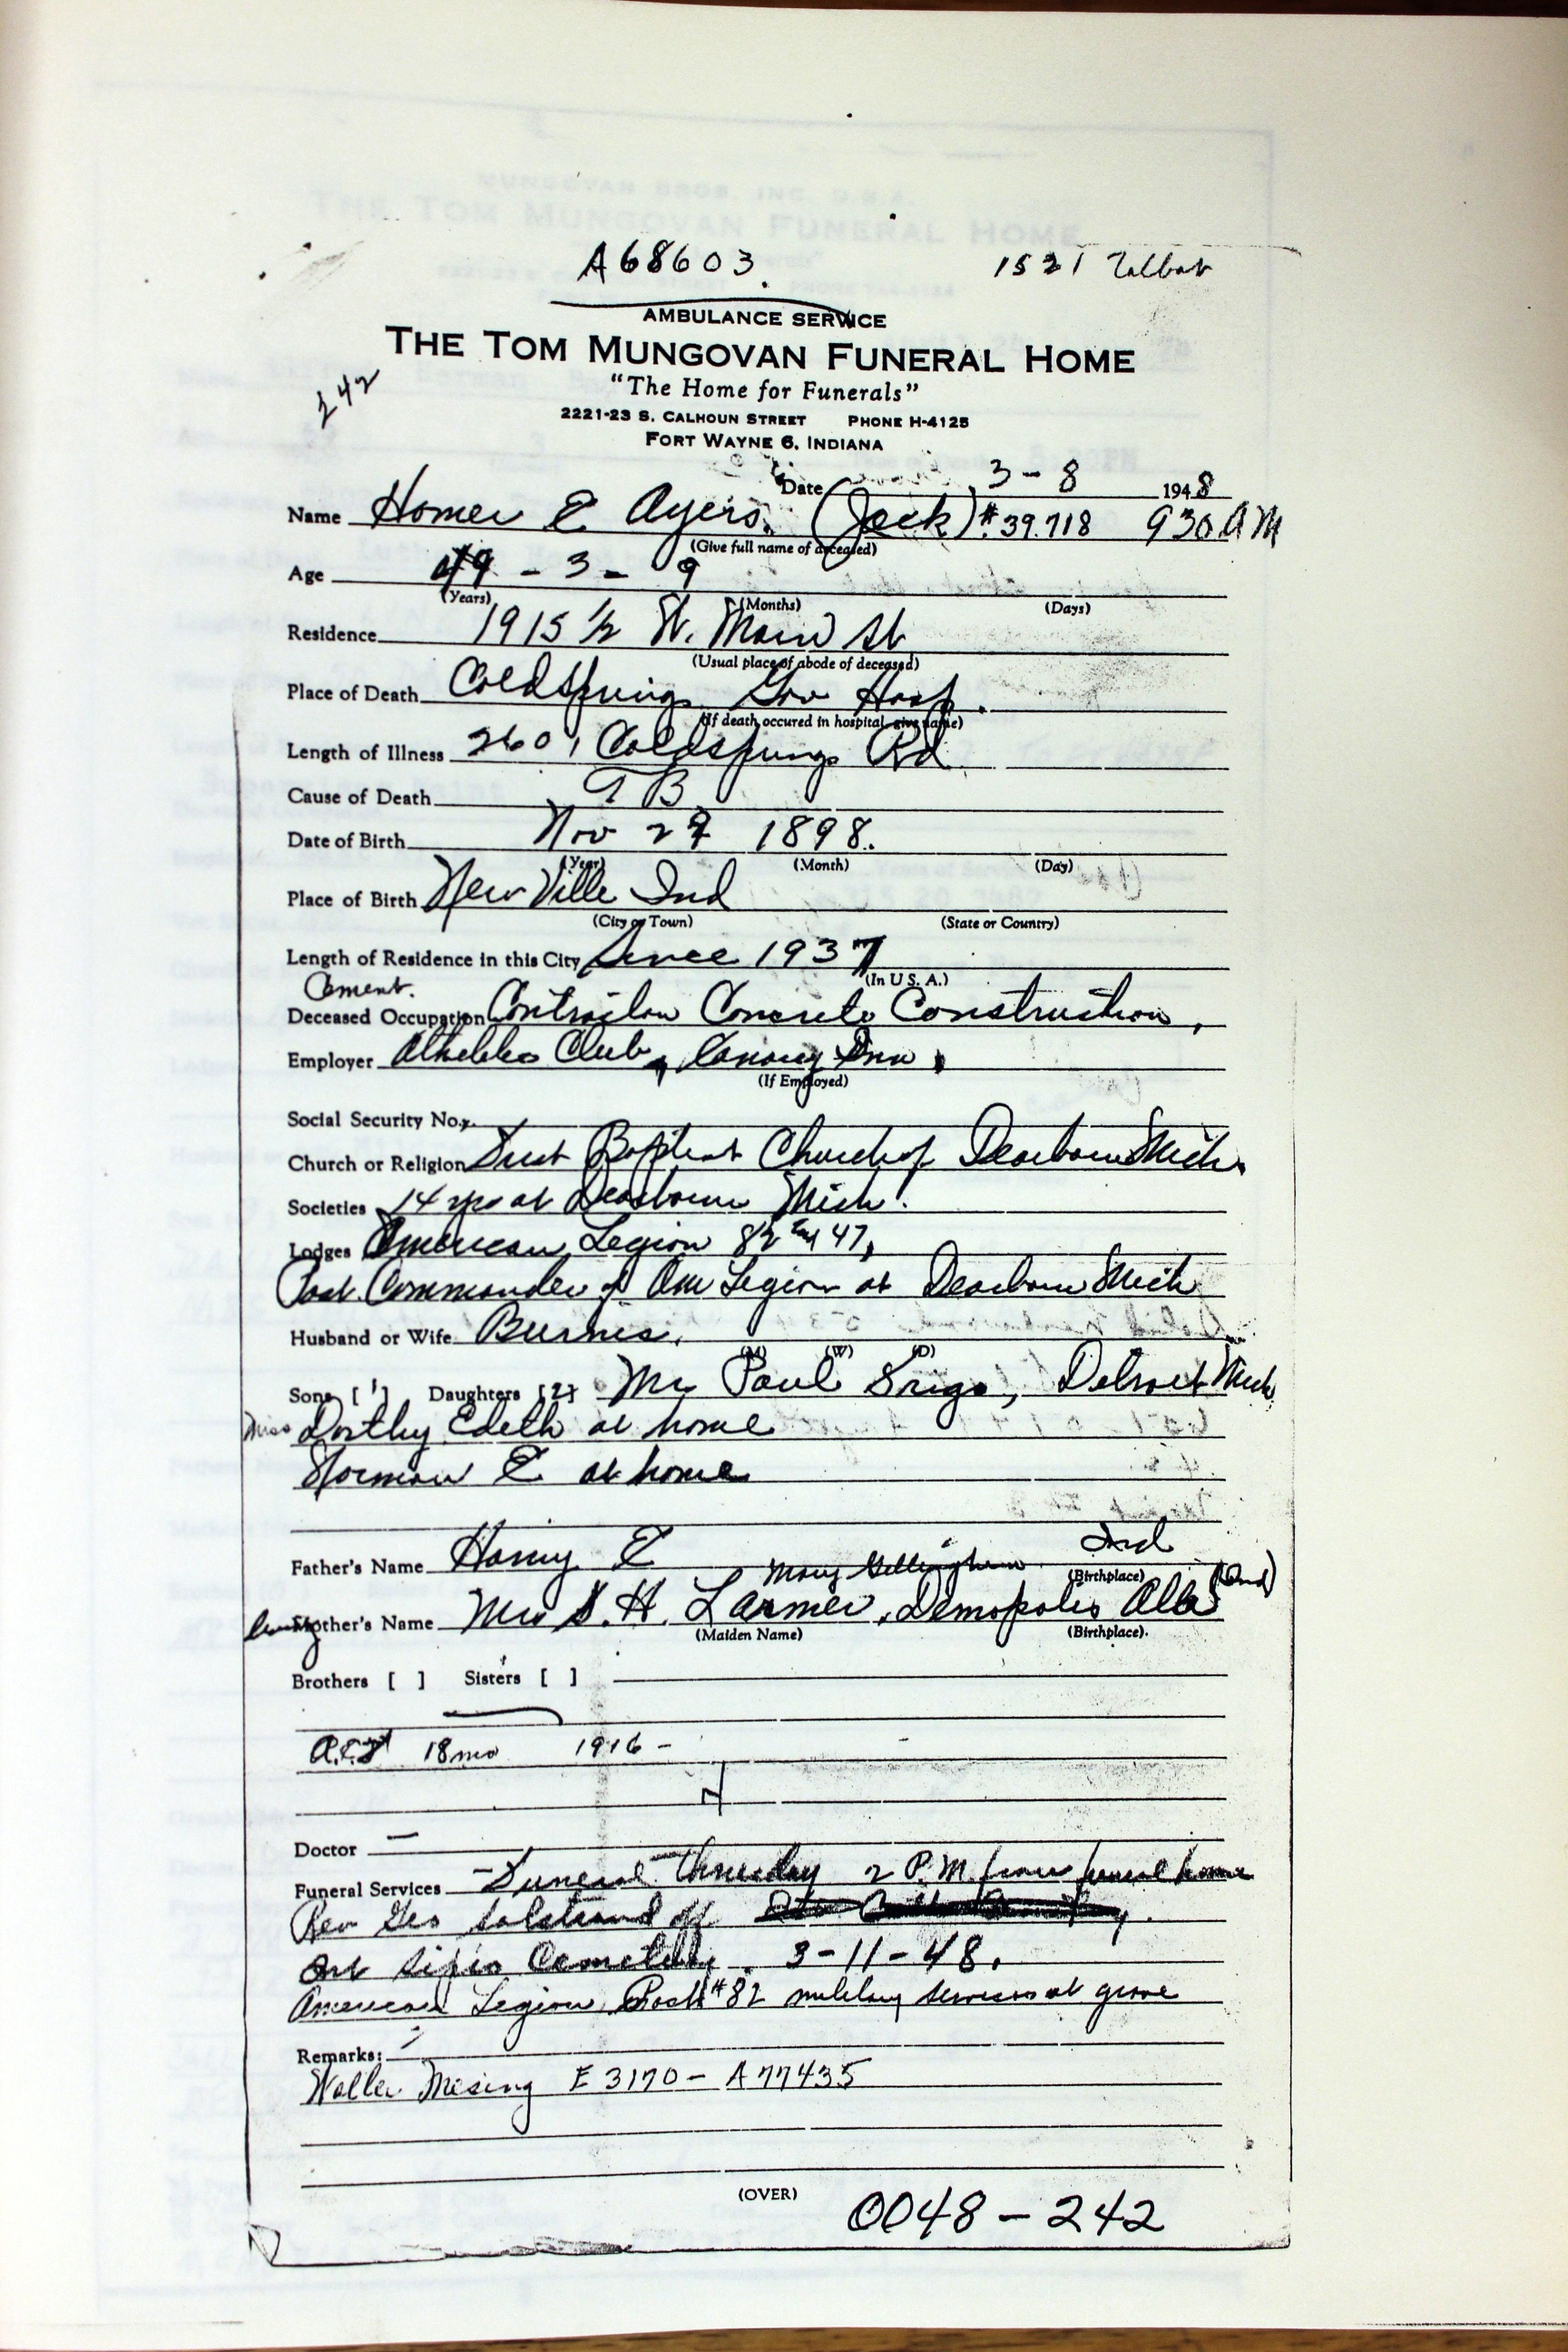 A68603.
1521 Talbot
AMBULANCE SERVICE
THE TOM MUNGOVAN FUNERAL HOME
"The Home for Funerals"
242
2221-23 S. CALHOUN STREET PHONE H-4125
FORT WAYNE 6, INDIANA
Date 3-8 1948
Name Homer E Ayers. (Jack) # 39.718 930 AM
(Give full name of deceased)
Age 49 - 3 - 9
(Years) (Months) (Days)
Residence 1915 1/2 W. Main St
(Usual place of abode of deceased)
Place of Death Coldsprings Gov Hosp.
(If death occured in hospital give name)
Length of Illness 2601 Coldsprings Rd
Cause of Death TB
Date of Birth Nov 27 1898.
(Year) (Month) (Day)
Place of Birth New Ville Ind
(City or Town) (State or Country)
Length of Residence in this City Since 1937
(In U.S.A.)
Cement.
Deceased Occupation Contractor Concrete Construction,
Employer Club, Inn,
(If Employed)
Social Security No.
Church or Religion First Baptist Church of Dearborn Mich.
Societies 14 yrs at Dearborn Mich.
Lodges American Legion 82 47,
Past Commander of Am Legion at Dearborn Mich
Husband or Wife Burnis.
(M) (W) (D)
Sons [1] Daughters [2] Paul Detroit Mich
Miss Dorthy Edeth at home
Norman E at home
Father's Name E Ind
Mary (Birthplace) (Ind)
living Mother's Name Mrs S. H. Larmer, Demopolis Ala
(Maiden Name) (Birthplace).
Brothers [ ] Sisters [ ]
18 mo 1916 -
Doctor —
Funeral Services Funeral Thursday 2 P.M. from funeral home
Rev Geo off
at Cemetery. 3-11-48.
American Legion Post #82 military services at grave
Remarks:
E 3170 - A77435
(OVER)
0048-242